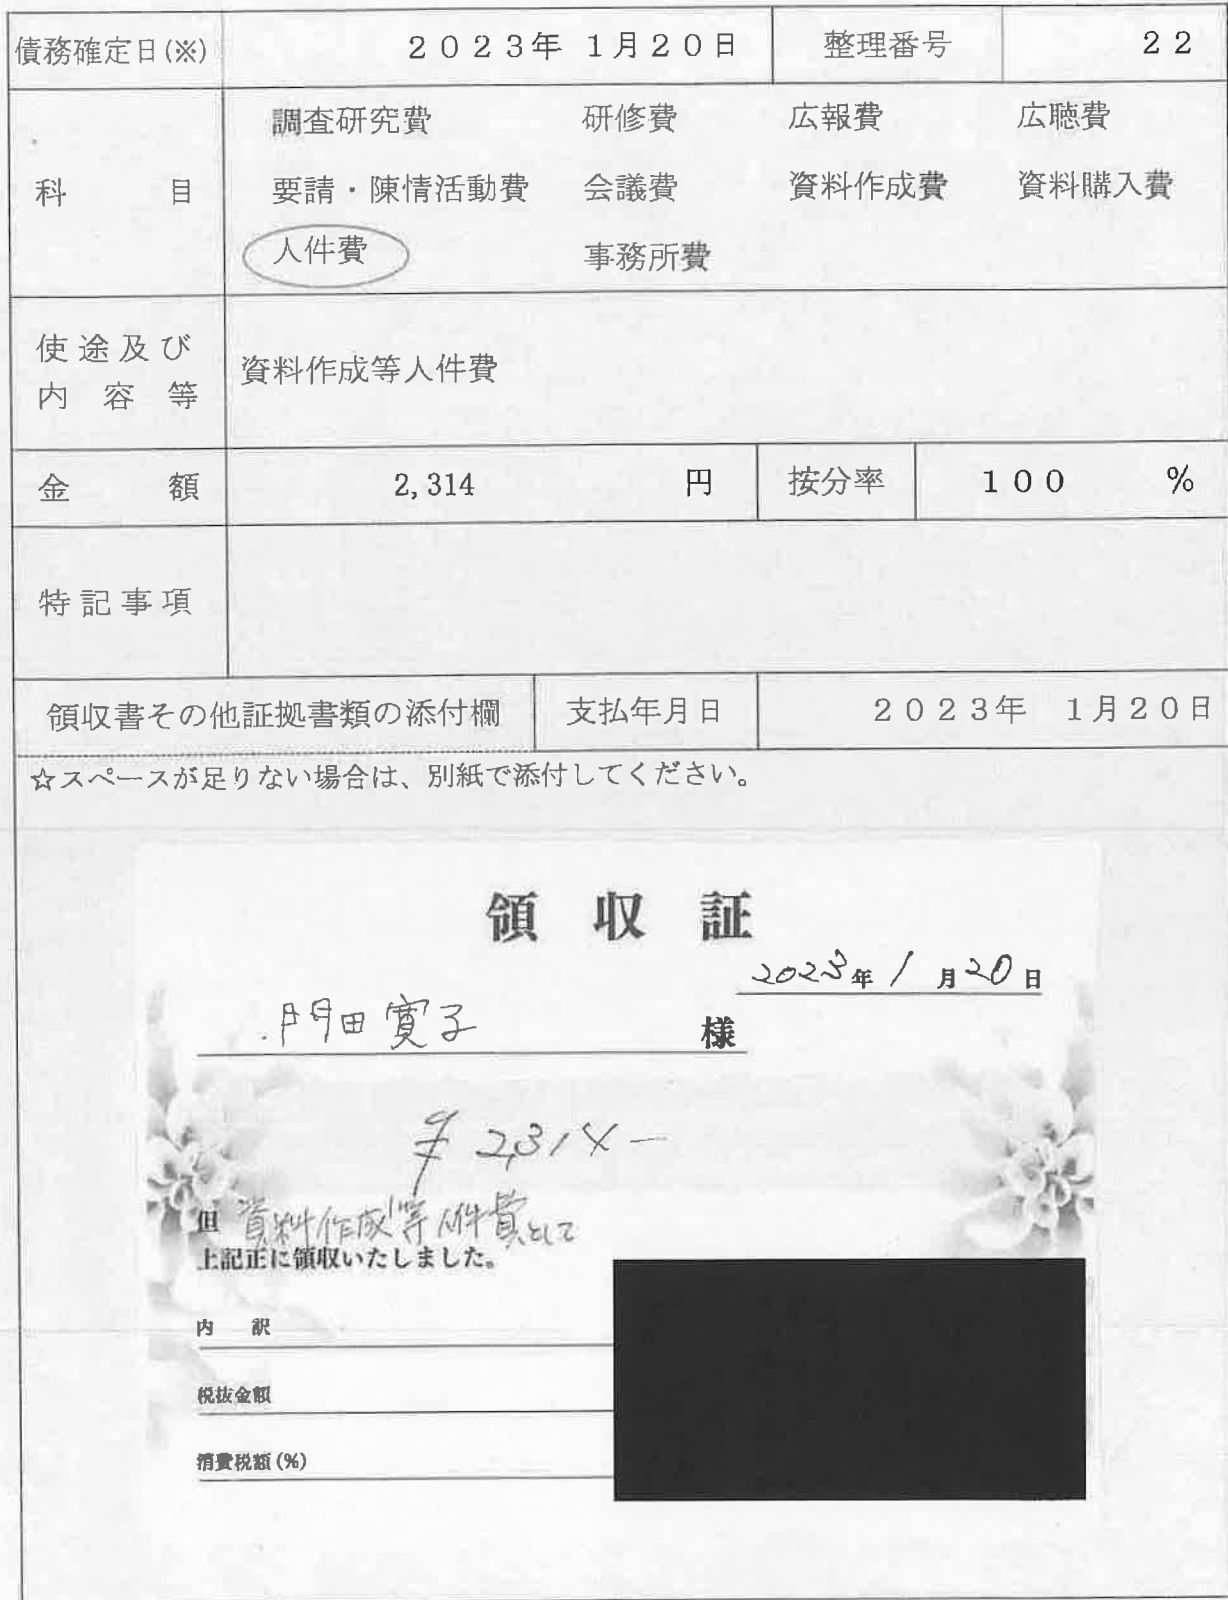 債務確定日(※) 2023年 1月20日 整理番号 22
科目
調査研究費 研修費 広報費 広聴費
要請・陳情活動費 会議費 資料作成費 資料購入費
人件費 事務所費
使途及び
内容等
資料作成等人件費
金額 2,314 円 按分率 100 %
特記事項
領収書その他証拠書類の添付欄 支払年月日 2023年 1月20日
☆スペースが足りない場合は、別紙で添付してください。
領収証
2023年 1月20日
門田寛子 様
¥2,314-
但 資料作成等人件費として
上記正に領収いたしました。
内訳
税抜金額
消費税額(%)